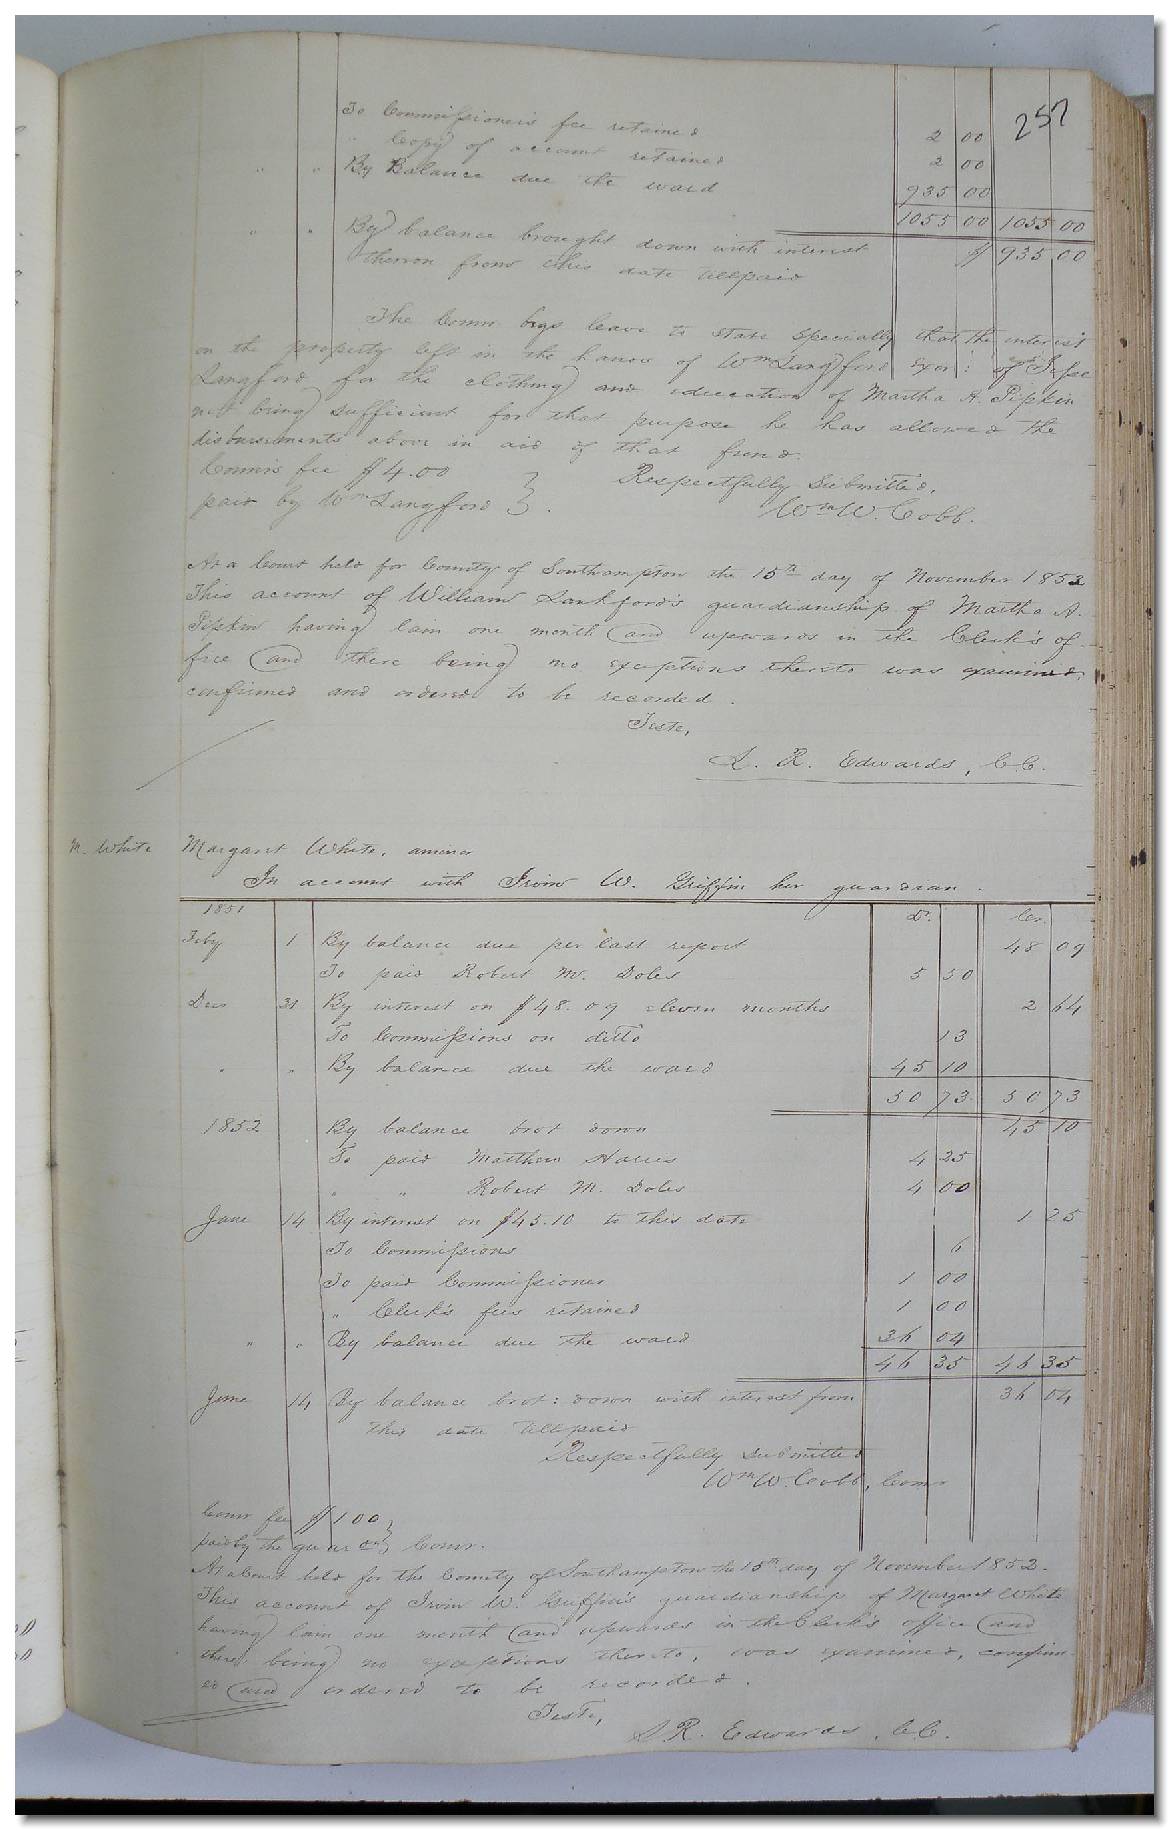 257
To Commissioner's fee retained 2 00
" Copy of account retained 2 00
" " By Balance due the ward 935 00
1055 00 1055 00
" " By balance brought down with interest $ 935 00
thereon from this date till paid
The Comr. begs leave to state specially that the interest
on the property left in the hands of Wm Langford Exor: of Jesse
Langford for the clothing and education of Martha A. Pipkin
not being sufficient for that purpose he has allowed the
disbursements above in aid of that fund.
Comr's fee $4.00
paid by Wm Langford } .
Respectfully submitted,
Wm W. Cobb.
At a Court held for County of Southampton the 15th day of November 1852
This account of William Lankford's guardianship of Martha A.
Pipkin having lain one month and upwards in the Clerk's of-
fice and there being no exceptions thereto was examined,
confirmed and ordered to be recorded.
Teste,
L. R. Edwards, C.C.
M. White
Margaret White, a minor
In account with Irvin W. Griffin her guardian.
1851 Dr. Cr.
Feby 1 By balance due per last report 48 09
To paid Robert M. Doles 5 50
Dec 31 By interest on $48.09 eleven months 2 64
To Commissions on ditto 13
" " By balance due the ward 45 10
50 73 50 73
1852 By balance brot down 45 10
To paid Matthew Harris 4 25
" " Robert M. Doles 4 00
June 14 By interest on $45.10 to this date 1 25
To Commissions 6
To paid Commissioner 1 00
" Clerk's fees retained 1 00
" " By balance due the ward 36 04
46 35 46 35
June 14 By balance brot: down with interest from 36 04
this date till paid
Respectfully submitted
Wm W. Cobb, Comr
Comr fee $1 00
paid by the guardn } Comr.
At a Court held for the County of Southampton the 15th day of November 1852.
This account of Irvin W. Griffin's guardianship of Margaret White
having lain one month and upwards in the Clerk's office and
there being no exceptions thereto, was examined, confirm-
ed and ordered to be recorded.
Teste,
L R. Edwards, C.C.